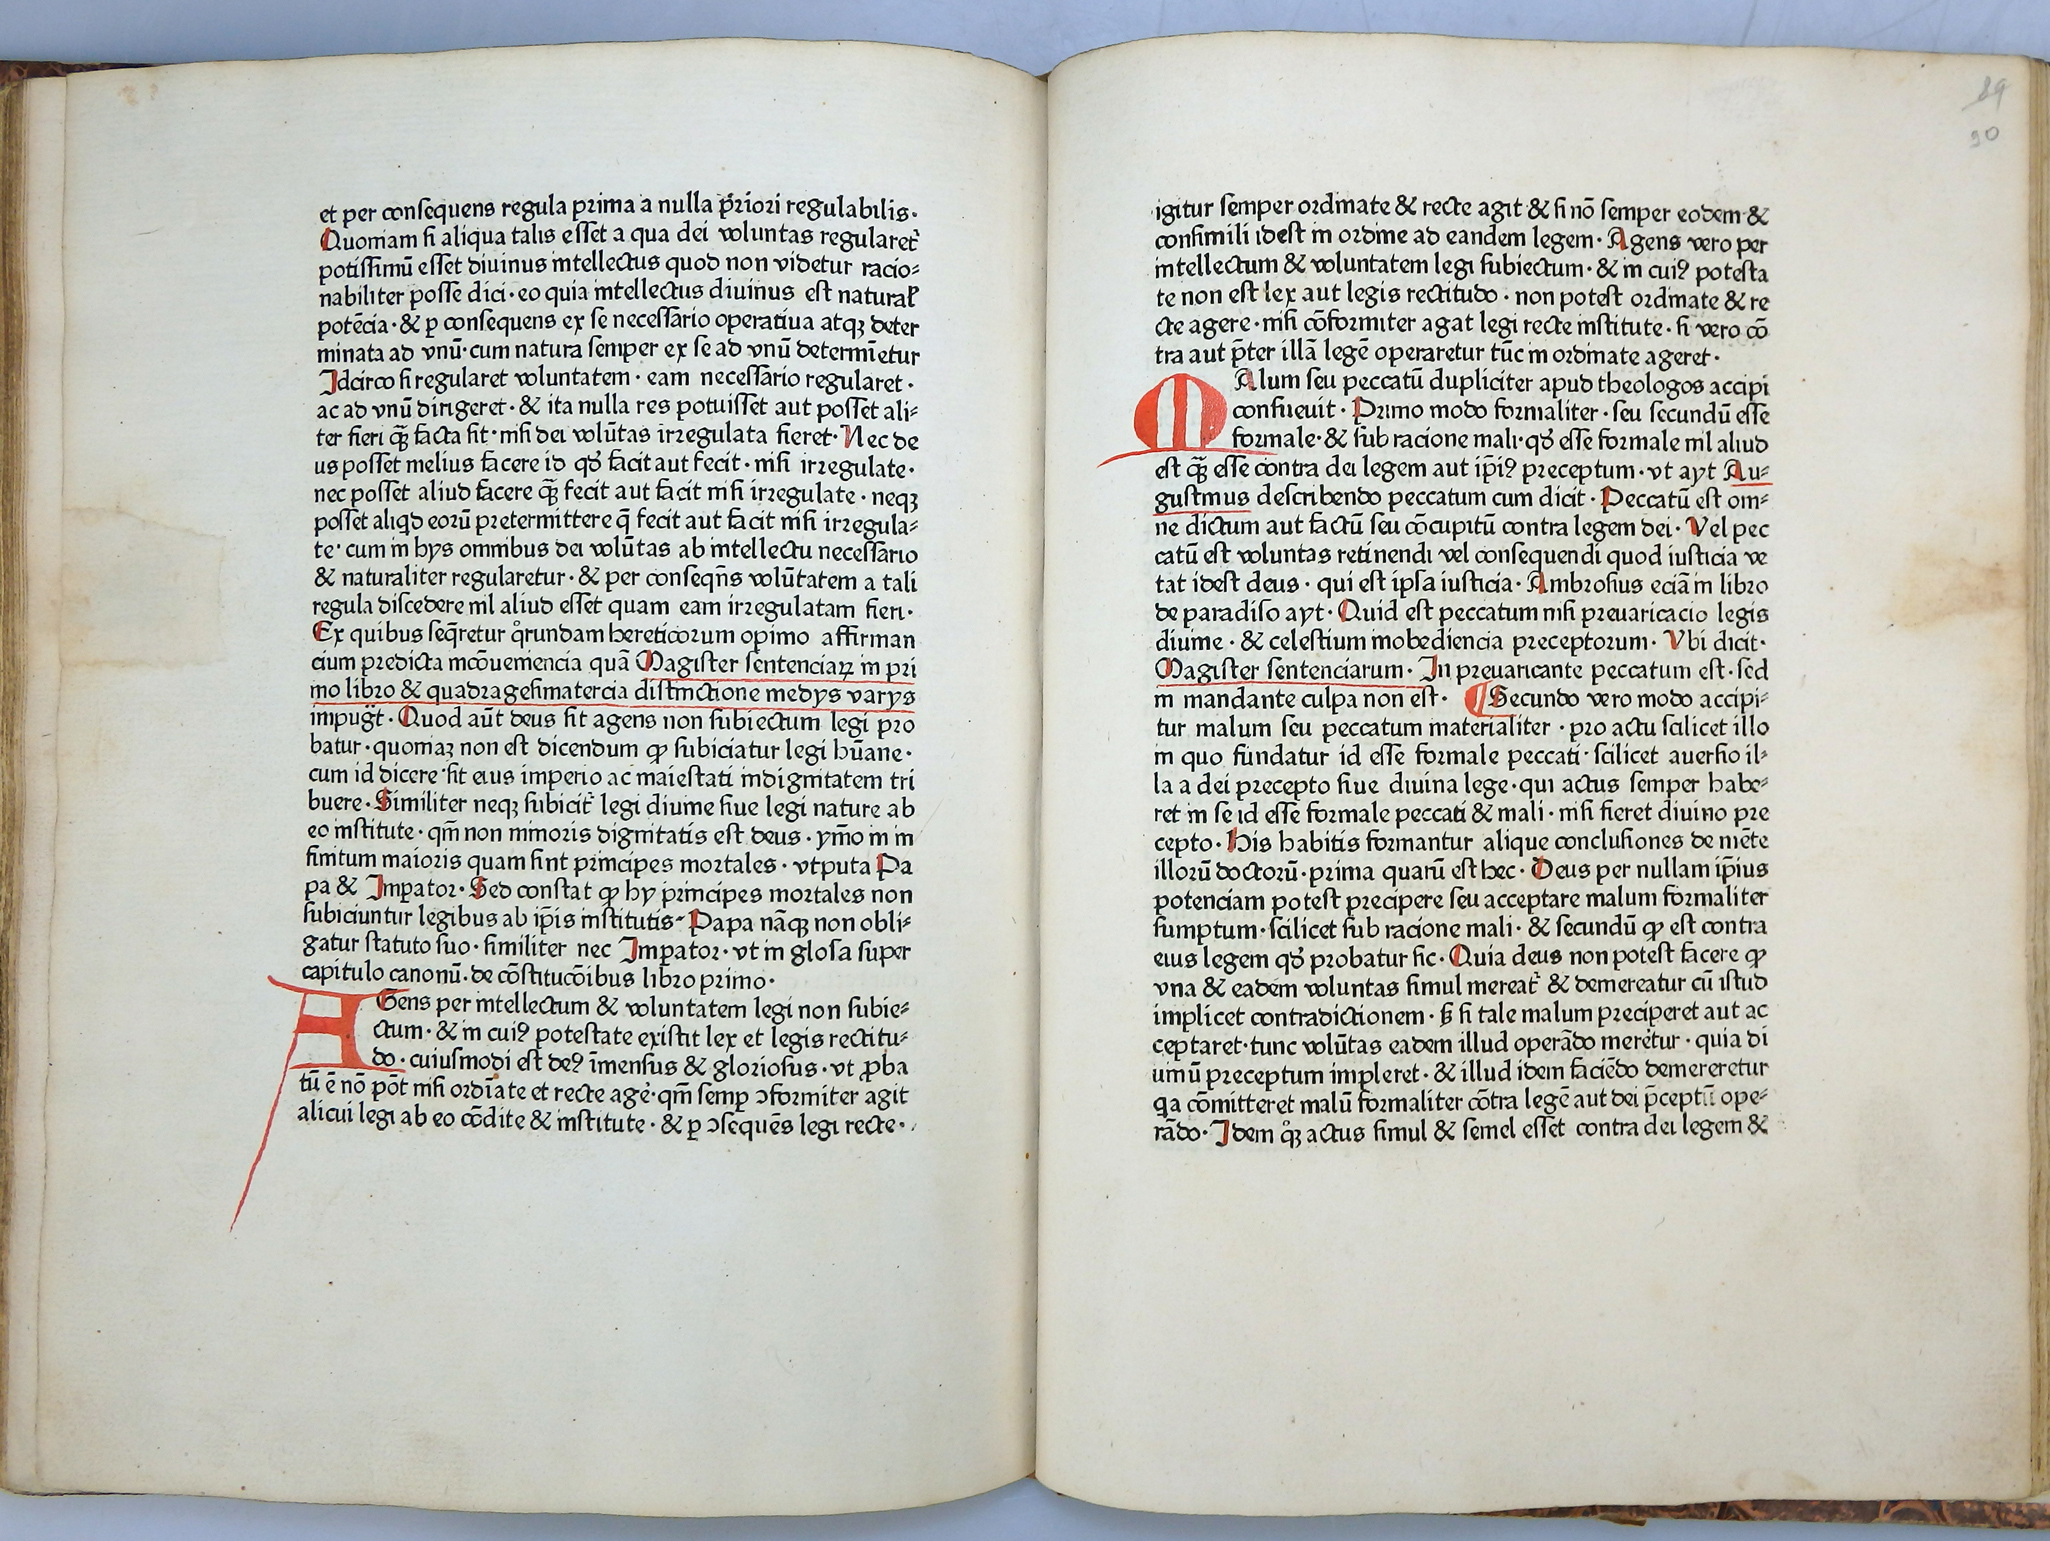 et per consequens regula prima a nulla p̄riori regulabilis·
Quoniam si aliqua talis esset a qua dei voluntas regularet᷑
potissimū esset diuinus intellectus quod non videtur racio⸗
nabiliter posse dici· eo quia intellectus diuinus est natural̕
potēcia· & ꝑ consequens ex se necessario operatiua atqꝫ deter
minata ad vnū· cum natura semper ex se ad vnū determīetur
Idcirco si regularet voluntatem· eam necessario regularet·
ac ad vnū dirigeret· & ita nulla res potuisset aut posset ali⸗
ter fieri qᷓꝫ facta sit· nisi dei volūtas irregulata fieret· Nec de
us posset melius facere id qđ facit aut fecit· nisi irregulate·
nec posset aliud facere qᷓꝫ fecit aut facit nisi irregulate· neqꝫ
posset aliqd eorū pretermittere q̄ fecit aut facit nisi irregula⸗
te· cum in hys omnibus dei volūtas ab intellectu necessario
& naturaliter regularetur· & per conseqn̄s volūtatem a tali
regula discedere nil aliud esset quam eam irregulatam fieri·
Ex quibus seq̄retur qͦrundam hereticorum opinio affirman
cium predicta incōueniencia quā Magister sentenciaꝝ in pri
mo libro & quadragesimatercia distinctione medys varys
impugᷓt· Quod aūt deus sit agens non subiectum legi pro
batur· quoniaꝫ non est dicendum ꝙ subiciatur legi hūane·
cum id dicere sit eius imperio ac maiestati indignitatem tri
buere· Similiter neqꝫ subicit᷑ legi diuine siue legi nature ab
eo institute· qm̄ non minoris dignitatis est deus· ymo in in
finitum maioris quam sint principes mortales· vtputa Pa
pa & Imꝑator· Sed constat ꝙ hy principes mortales non
subiciuntur legibus ab ip̄is institutis· Papa nāqꝫ non obli⸗
gatur statuto suo· similiter nec Imꝑator· vt in glosa super
capitulo canonū· de cōstitucōibus libro primo·
AGens per intellectum & voluntatem legi non subie⸗
ctum· & in cuiꝰ potestate existit lex et legis rectitu⸗
do· cuiusmodi est deꝰ īmensus & gloriosus· vt ꝓba
tū ē nō pōt nisi ordīate et recte agē· qm̄ semꝑ ɔformiter agit
alicui legi ab eo cōdite & institute· & ꝑ ɔsequēs legi recte·
89
90
igitur semper ordinate & recte agit & si nō semper eodem &
consimili idest in ordine ad eandem legem· Agens vero per
intellectum & voluntatem legi subiectum· & in cuiꝰ potesta
te non est lex aut legis rectitudo· non potest ordinate & re
cte agere· nisi cōformiter agat legi recte institute· si vero cō
tra aut p̄ter illā legē operaretur tūc in ordinate ageret·
MAlum seu peccatū dupliciter apud theologos accipi
consueuit· Primo modo formaliter· seu secundū esse
formale· & sub racione mali· qđ esse formale nil aliud
est qᷓꝫ esse contra dei legem aut ip̄iꝰ preceptum· vt ayt Au⸗
gustinus describendo peccatum cum dicit· Peccatū est om⸗
ne dictum aut factū seu cōcupitū contra legem dei· Vel pec
catū est voluntas retinendi vel consequendi quod iusticia ve
tat idest deus· qui est ipsa iusticia· Ambrosius eciā in libro
de paradiso ayt· Quid est peccatum nisi preuaricacio legis
diuine· & celestium inobediencia preceptorum· Vbi dicit·
Magister sentenciarum· In preuaricante peccatum est· sed
in mandante culpa non est· ¶ Secundo vero modo accipi⸗
tur malum seu peccatum materialiter· pro actu scilicet illo
in quo fundatur id esse formale peccati· scilicet auersio il⸗
la a dei precepto siue diuina lege· qui actus semper habe⸗
ret in se id esse formale peccati & mali· nisi fieret diuino pre
cepto· His habitis formantur alique conclusiones de mēte
illorū doctorū· prima quarū est hec· Deus per nullam ip̄ius
potenciam potest precipere seu acceptare malum formaliter
sumptum· scilicet sub racione mali· & secundū ꝙ est contra
eius legem qđ probatur sic· Quia deus non potest facere ꝙ
vna & eadem voluntas simul mereat᷑ & demereatur cū istud
implicet contradictionem· ꝟ si tale malum preciperet aut ac
ceptaret· tunc volūtas eadem illud operādo meretur· quia di
uinū preceptum impleret· & illud idem faciēdo demereretur
qa cōmitteret malū formaliter cōtra legē aut dei p̄ceptū ope⸗
rādo· Idem qͦꝫ actus simul & semel esset contra dei legem &